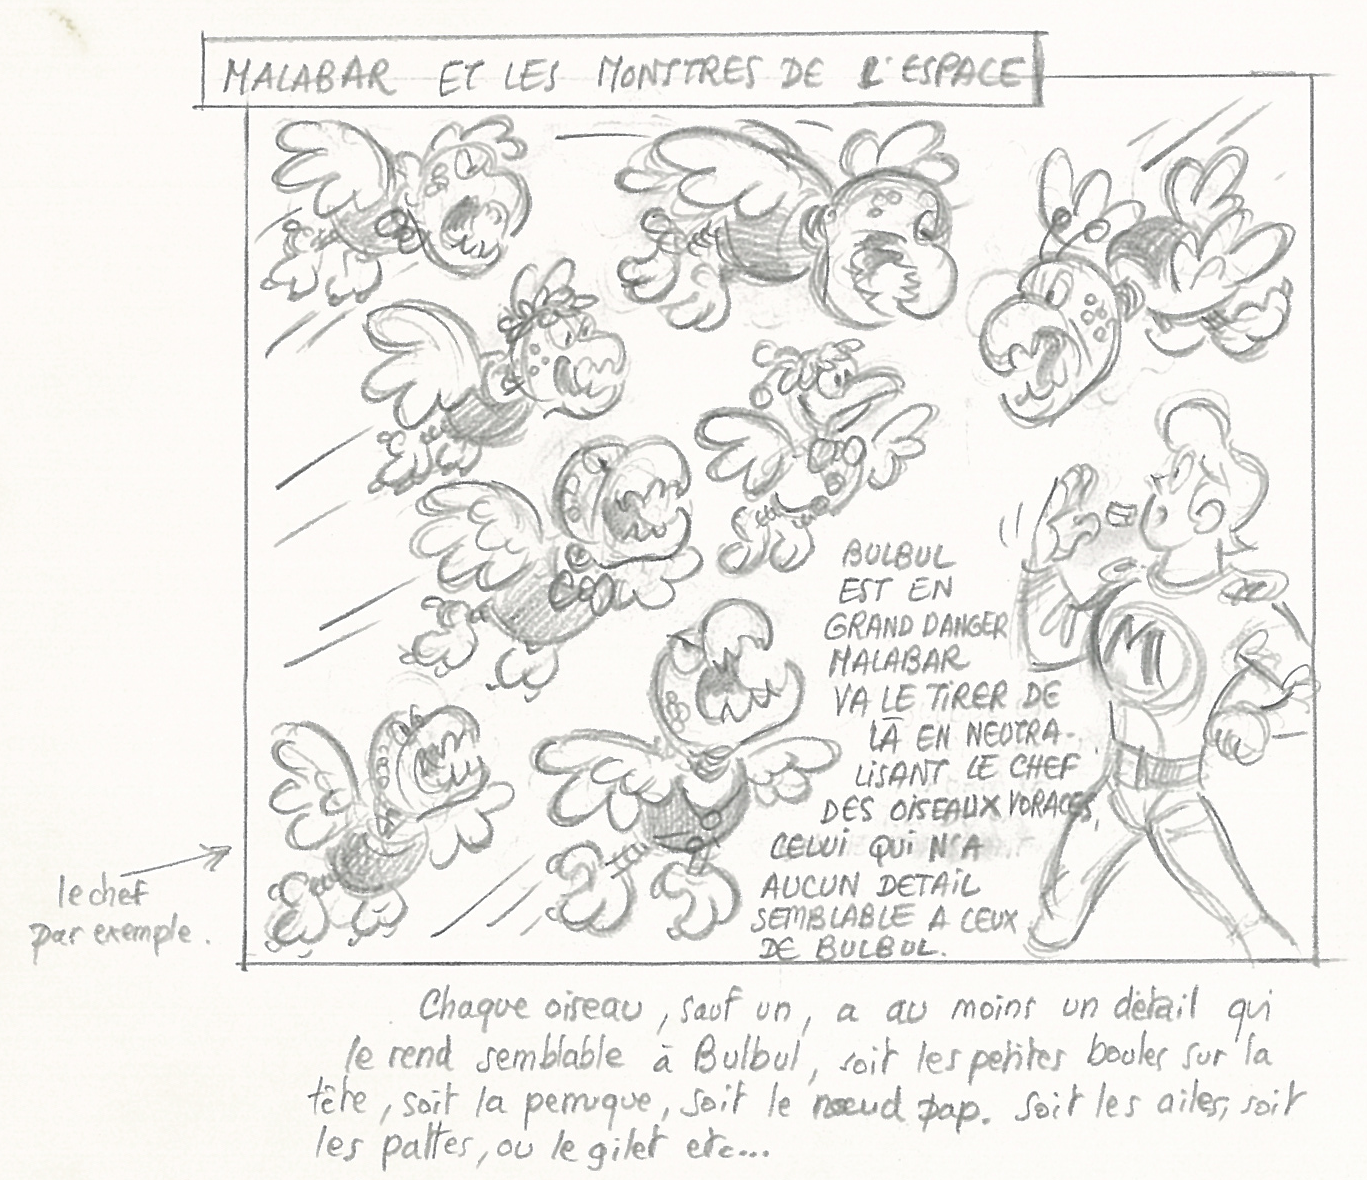 MALABAR ET LES MONSTRES DE L'ESPACE
M
BULBUL
EST EN
GRAND DANGER
MALABAR
VA LE TIRER DE
LÀ EN NEUTRA-
LISANT LE CHEF
DES OISEAUX VORACES,
CELUI QUI N'A
AUCUN DETAIL
SEMBLABLE A CEUX
DE BULBUL.
le chef
par exemple.
Chaque oiseau, sauf un, a au moins un détail qui
le rend semblable à Bulbul, soit les petites boules sur la
tête, soit la perruque, soit le nœud pap. soit les ailes, soit
les pattes, ou le gilet etc...